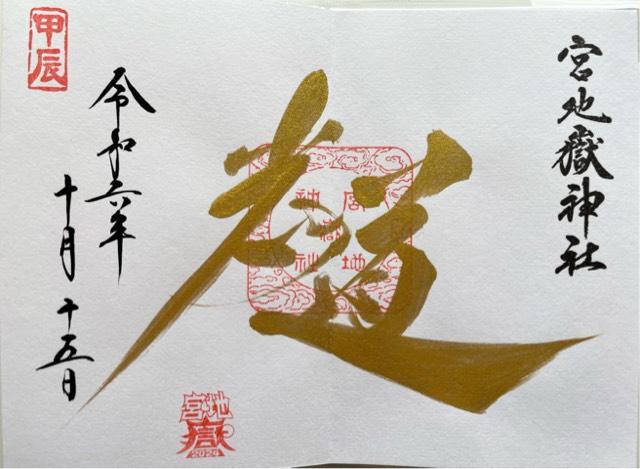 宮地嶽神社
宮地
嶽
神社
甲辰
令和六年
十月十五日
宮地
嶽
2024